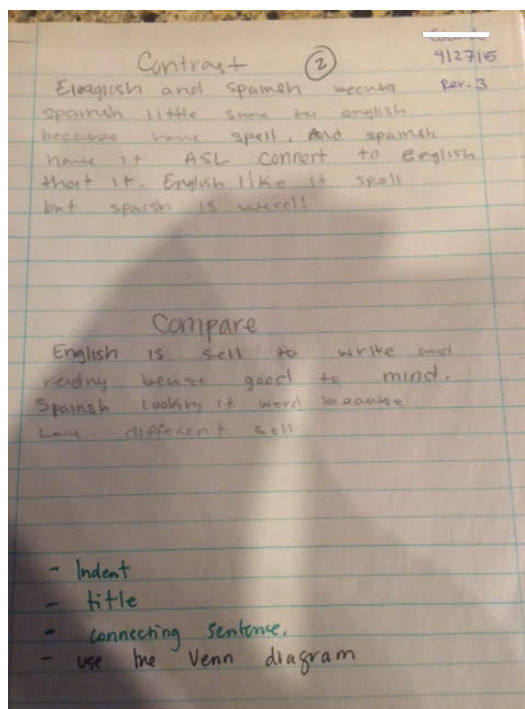 9/27/15
Contrast 2
Per. 3
and Spainsh
spainsh little same to english
because have spell, And spanish
have it ASL connert to English
that it. English like it spell
but sparsh is werd!
Compare
English is sell to write and
readny beuse good to mind.
Spainsh lookiny it werd because
different sell
- Indent
- title
- connecting sentence.
- use the Venn diagram